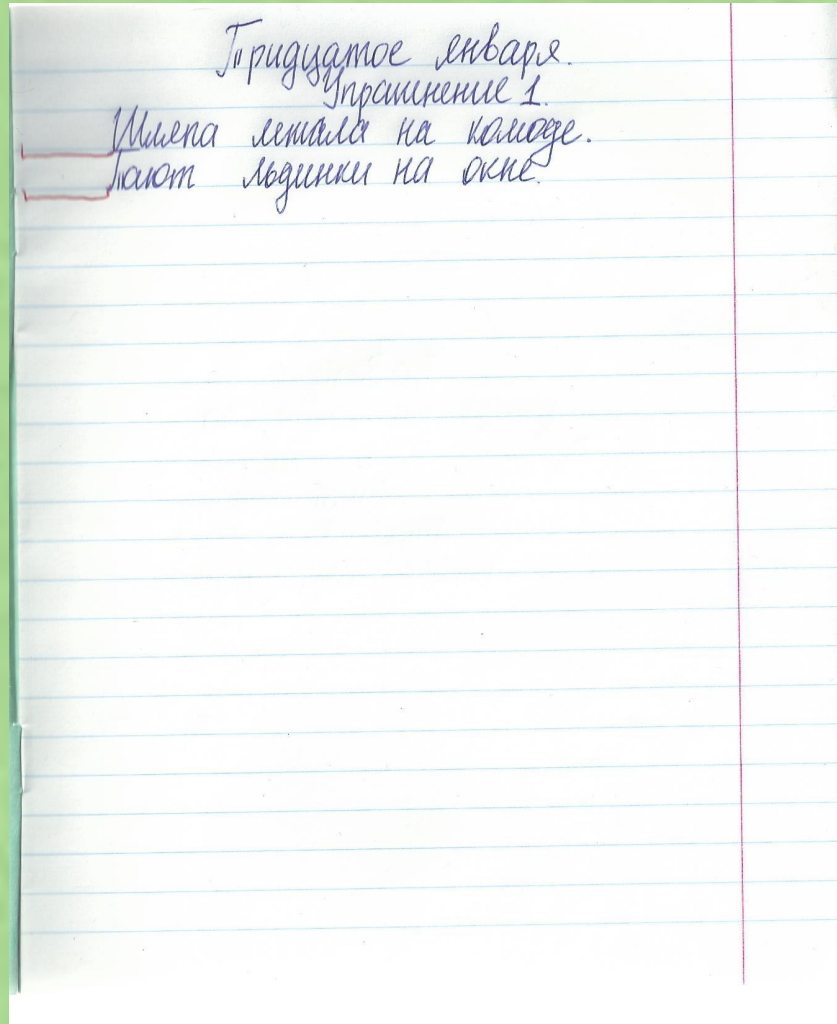 Тридцатое января.
Упражнение 1.
Шляпа лежала на комоде.
Тают льдинки на окне.